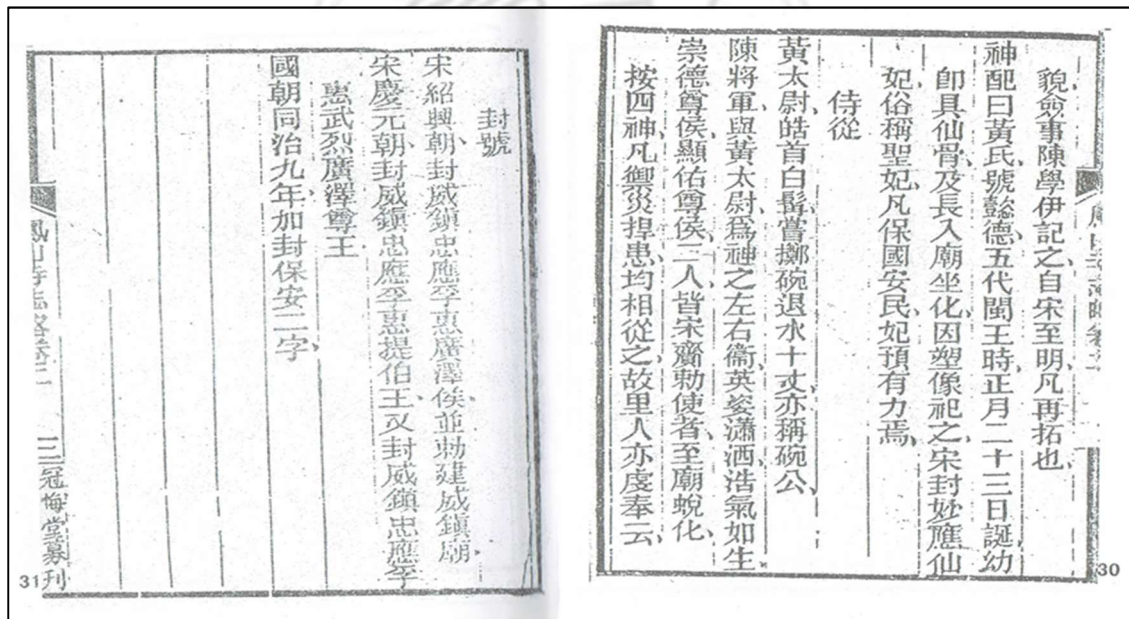 貌僉事陳學伊記之自宋至明凡再拓也
神配曰黃氏號懿德五代閩王時正月二十三日誕幼
卽具仙骨及長入廟坐化因塑像祀之宋封妙應仙
妃俗稱聖妃凡保國安民妃預有力焉
侍從
黃太尉皓首白髯嘗擲碗退水十丈亦稱碗公
陳將軍與黃太尉爲神之左右衞英姿瀟洒浩氣如生
崇德尊侯顯佑尊侯二人皆宋齎勅使者至廟蛻化
按四神凡禦災捍患均相從之故里人亦虔奉云
30
封號
宋紹興朝封威鎮忠應孚惠廣澤侯並勅建威鎮廟
宋慶元朝封威鎮忠應孚惠提伯王又封威鎮忠應孚
惠武烈廣澤尊王
國朝同治九年加封保安二字
鳳山寺志略卷二
三 冠悔堂募刊
31